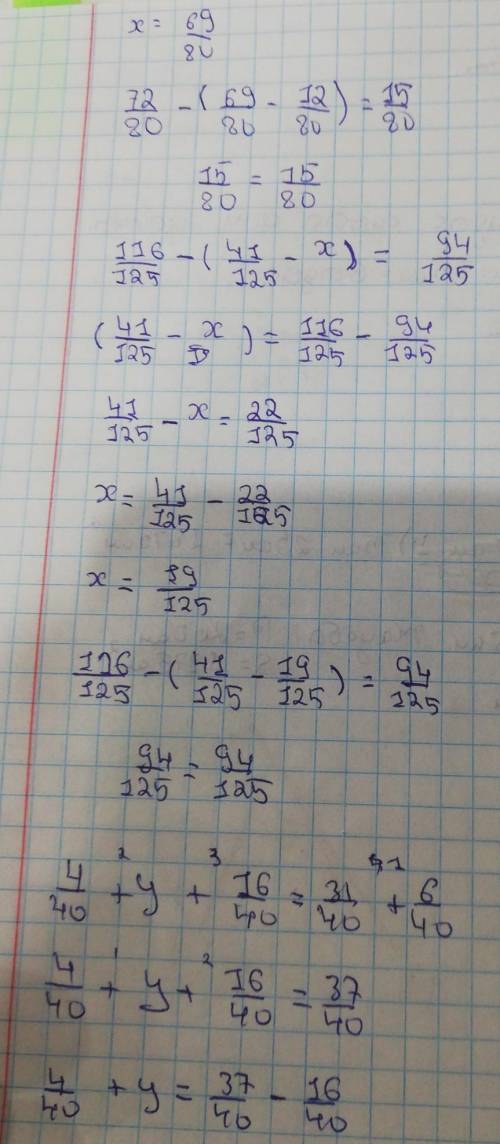 x = 69/80
72/80 - (69/80 - 12/80) = 15/80
15/80 = 15/80
116/125 - (41/125 - x) = 94/125
(41/125 - x) = 116/125 - 94/125
41/125 - x = 22/125
x = 41/125 - 22/125
x = 19/125
116/125 - (41/125 - 19/125) = 94/125
94/125 = 94/125
4/40 +² y +³ 16/40 = 31/40 +¹ 6/40
4/40 +¹ y +² 16/40 = 37/40
4/40 + y = 37/40 - 16/40